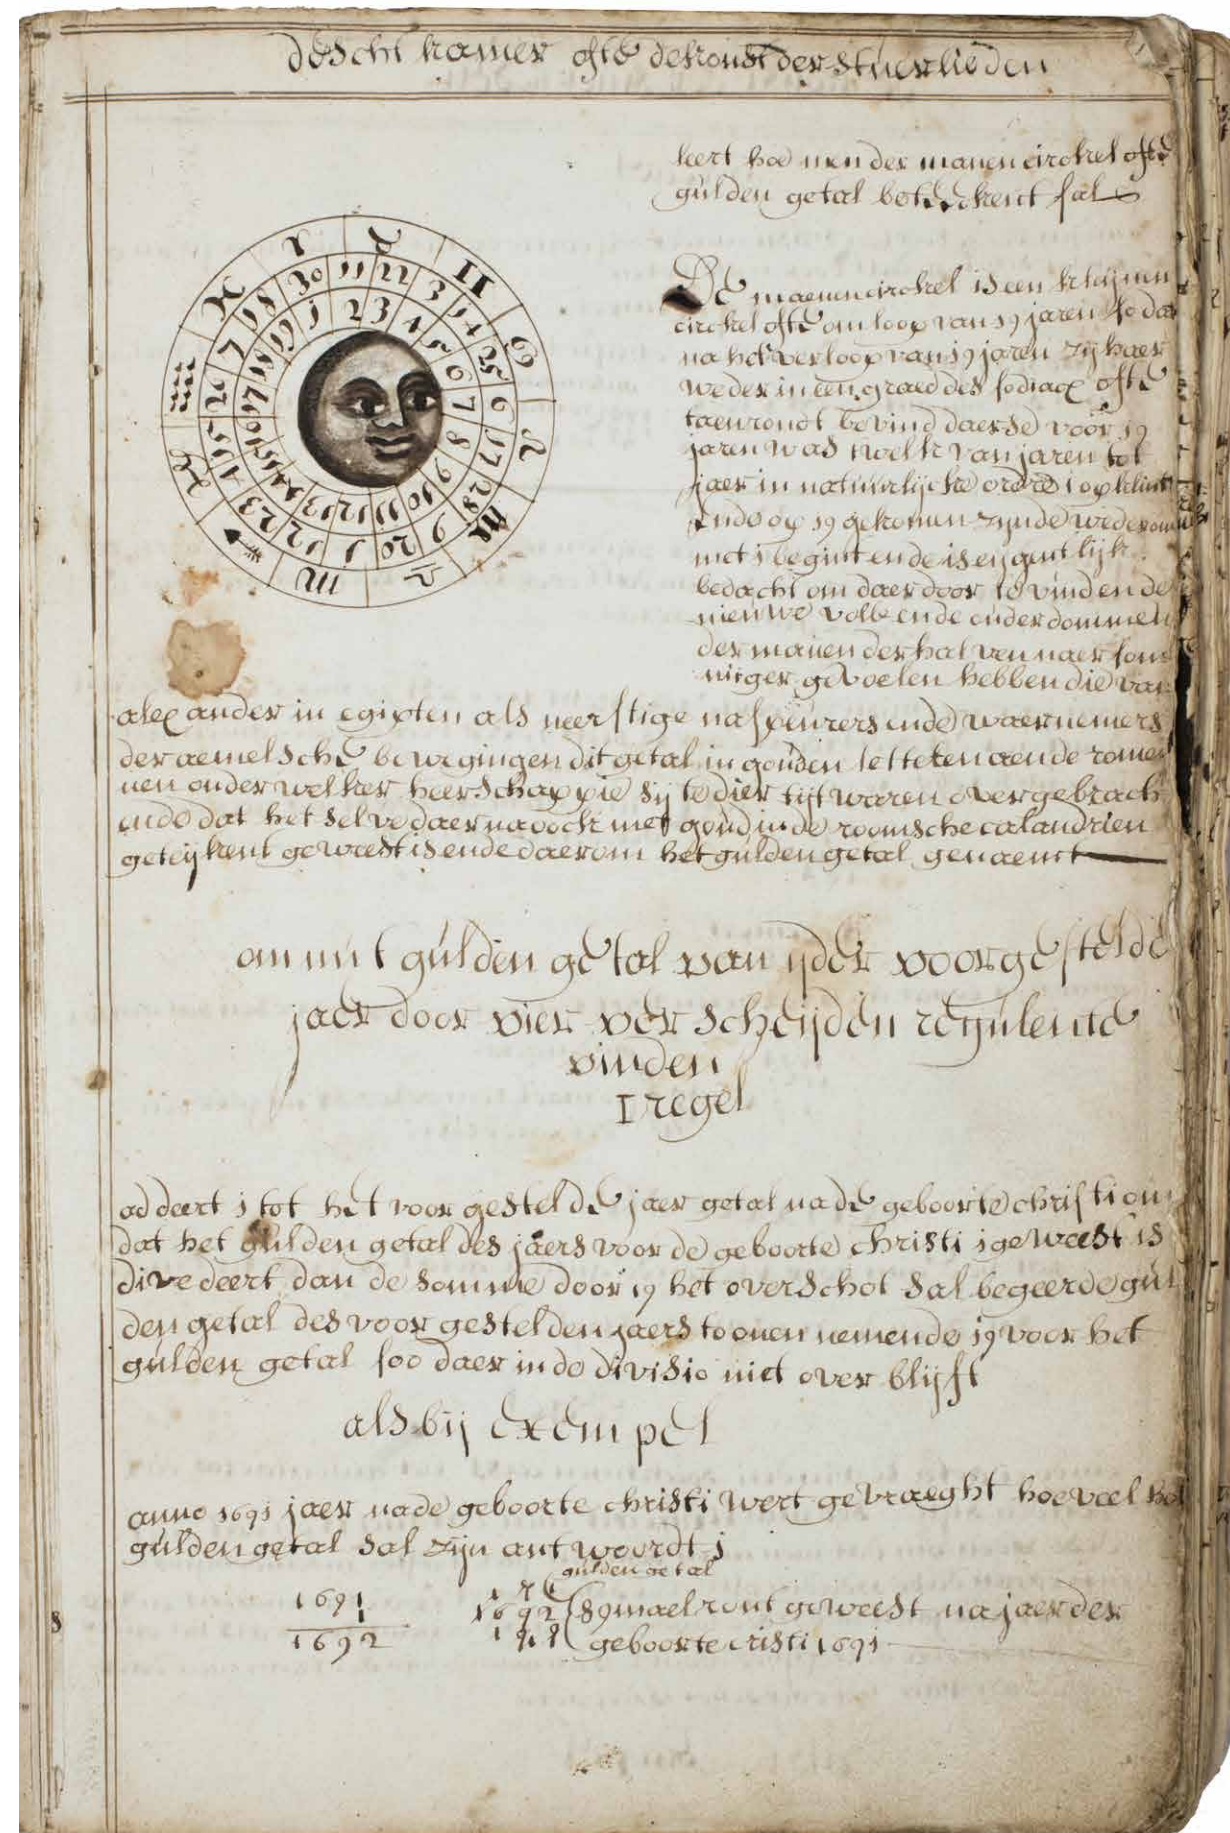 de Scht kamer ofte de konst der Stuerlieden
leert hoe men der manen circkel ofte
gulden getal bereeckent sal
De maenencirckel is een kleijnen
circkel ofte omloop van 19 jaren so dat
na het verloop van 19 jaren zij haer
weder in een graed des sodiacx ofte
taenrondt bevind daerse voor 19
jaren was twelk van jaren tot
jaer in natuurlijcke ordre opklimt
ende op 19 gekomen zijnde wederom
met 1 begint ende is eijgentlijk
bedacht om daer door te vinden de
nieuwe volle ende ouderdommen
der manen derhalven naer som
niger gevoelen hebben die van
alexander in egipten als neerstige naspeurers ende waernemers
der aemelsche bewegingen dit getal in gouden letteren aen de romei
nen onder welker heerSchappie Sij te dier tijt waren overgebrach
ende dat het selve daer na oock met goud in de roomsche calandrien
geteijkent geweest is ende daerom het gulden getal genaemt
om mit gulden getal van ijder voorgestelde
jaer door vier verscheijden regulen te
vinden
I regel
addeert 1 tot het voor gestelde jaer getal na de geboorte christi om
dat het gulden getal des jaers voor de geboorte christi 1 geweest is
divedeert dan de Somme door 19 het overschot Sal begeerde gul
den getal des voor gestelden jaers toonen nemende 19 voor het
gulden getal soo daer in de divisio niet over blijft
als bij exempel
anno 1691 jaer na de geboorte christi wert gevraeght hoeveel het
gulden getal Sal zijn antwoordt 1
gulden getal
1691
1
1692
1692 (89 mael ront geweest na jaer der
geboorte cristi 1691
2 3 4 5 6 7 8 9 10 11 12 13 14 15 16 17 18 19 1
11 22 3 14 25 6 17 28 9 20 1 12 23 4 15 26 7 18 30
♈ ♉ ♊ ♋ ♌ ♍ ♎ ♏ ♐ ♑ ♒ ♓